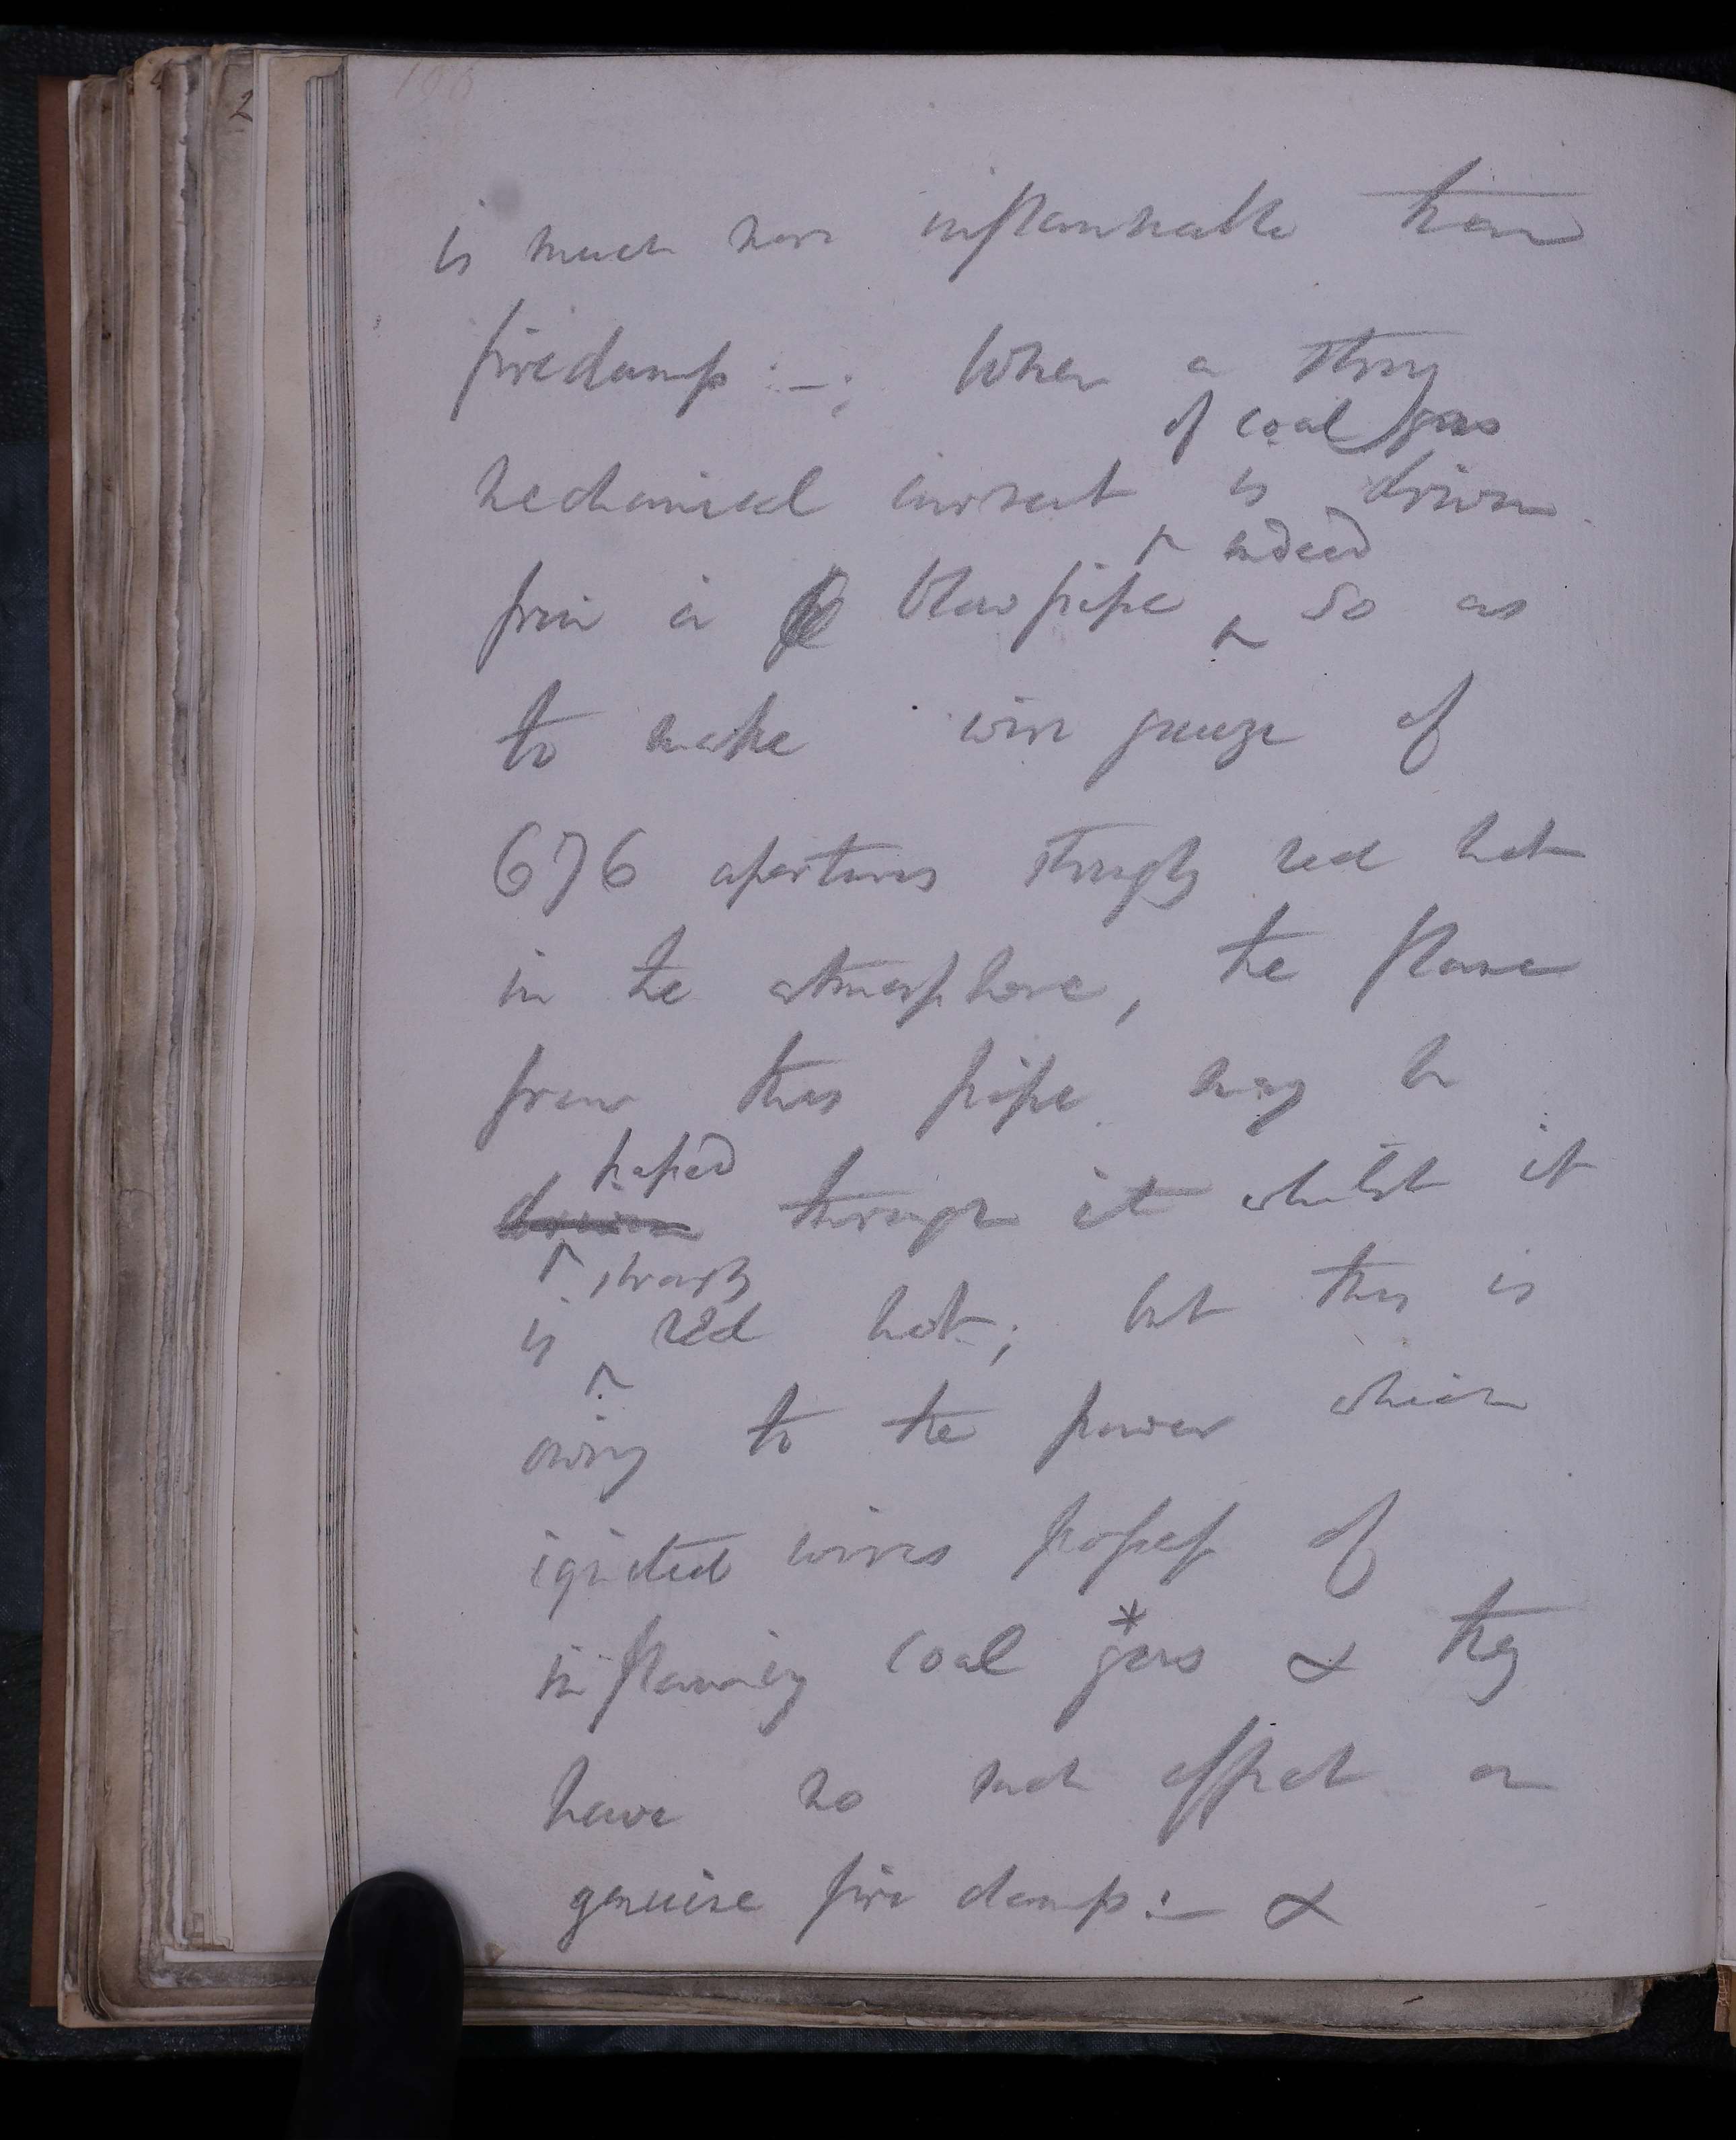 196
is much more inflammable than
firedamp :–; When a strong
of coal gas
mechanical current is driven
indeed
from a blowpipe so as
to make wire gauze of
676 apertures strongly red hot
in the atmosphere, the flame
from this pipe may be
passed
driven through it whilst it
strongly
is red hot; but this is
owing to the power which
ignited wires possess of
inflaming coal gas * & they
have no such effect on
genuine fire damp:– &
2